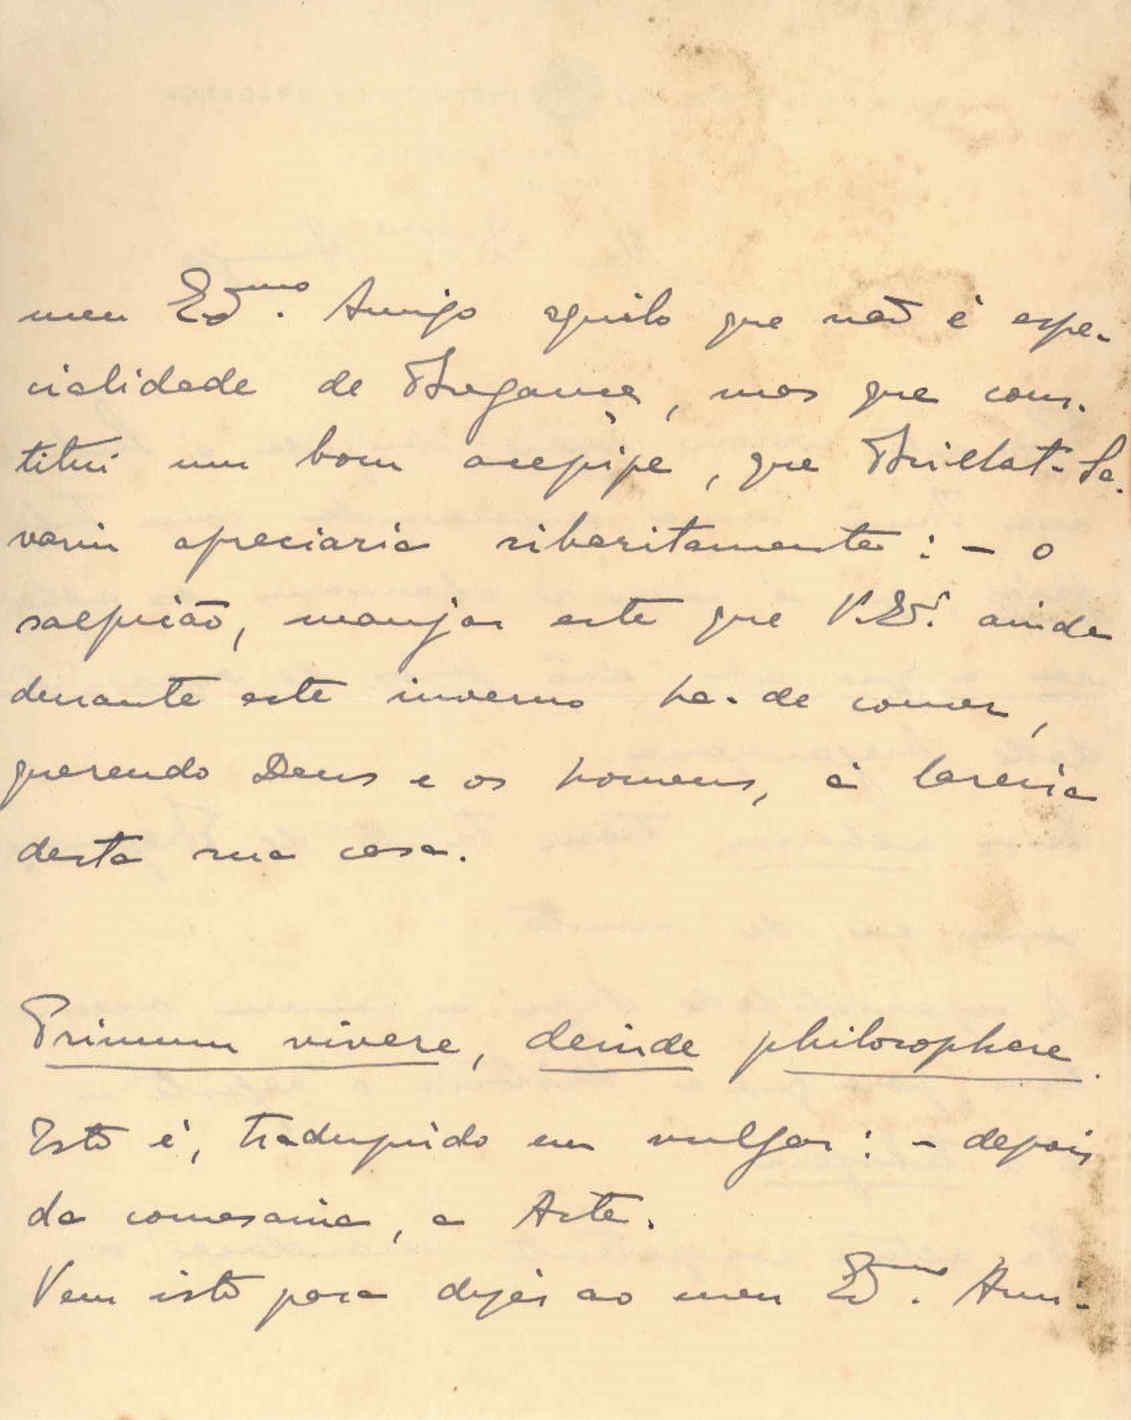 meu Ex.mo Amigo aquilo que não é espe-
cialidade de Bragança, mas que cons-
titui um bom acepipe, que Brillat-Sa-
varin apreciaria sibaritamente: - o
salpicão, manjar este que V. Ex.ª ainda
durante este inverno ha-de comer,
querendo Deus e os homens, á lareira
desta sua casa.
Primum vivere, deinde philosophare.
Isto é, traduzido em vulgar: - depois
da comesaina, a Arte.
Vem isto para dizer ao meu Ex.mo Ami-